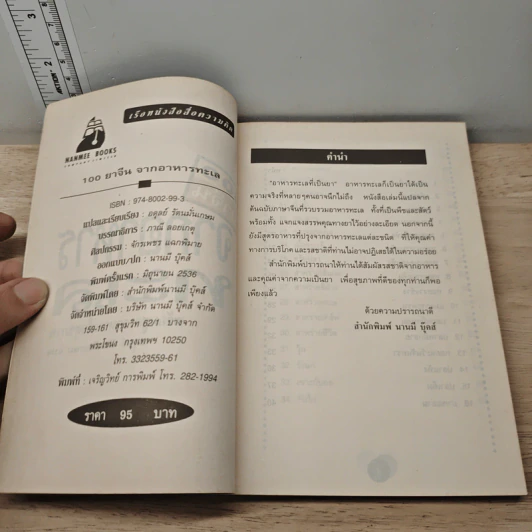 NANMEE BOOKS
เรือหนังสือสื่อความคิด
100 ยาจีน จากอาหารทะเล
ISBN : 974-8002-99-3
แปลและเรียบเรียง : อดุลย์ รัตนมั่นเกษม
บรรณาธิการ : ภาณี ลอยเกตุ
ศิลปกรรม : จักรเพชร แฉกพิมาย
ออกแบบ/ปก : นานมี บุ๊คส์
พิมพ์ครั้งแรก : มิถุนายน 2536
จัดพิมพ์โดย : สำนักพิมพ์นานมี บุ๊คส์
จัดจำหน่ายโดย : บริษัท นานมี บุ๊คส์ จำกัด
159-161 สุขุมวิท 62/1 บางจาก
พระโขนง กรุงเทพฯ 10250
โทร. 3323559-61
พิมพ์ที่ : เจริญวิทย์ การพิมพ์ โทร. 282-1994
ราคา 95 บาท
คำนำ
"อาหารทะเลที่เป็นยา" อาหารทะเลก็เป็นยาได้เป็น
ความจริงที่หลายๆคนอาจนึกไม่ถึง หนังสือเล่มนี้แปลจาก
ต้นฉบับภาษาจีนที่รวบรวมอาหารทะเล ทั้งที่เป็นพืชและสัตว์
พร้อมทั้ง แจกแจงสรรพคุณทางยาไว้อย่างละเอียด นอกจากนี้
ยังมีสูตรอาหารที่ปรุงจากอาหารทะเลแต่ละชนิด ที่ให้คุณค่า
ทางการบริโภค และรสชาติที่ท่านไม่อาจปฏิเสธได้ในความอร่อย
สำนักพิมพ์ปรารถนาให้ท่านได้สัมผัสรสชาติจากอาหาร
และคุณค่าจากความเป็นยา เพื่อสุขภาพที่ดีของทุกท่านก็พอ
เพียงแล้ว
ด้วยความปรารถนาดี
สำนักพิมพ์ นานมี บุ๊คส์